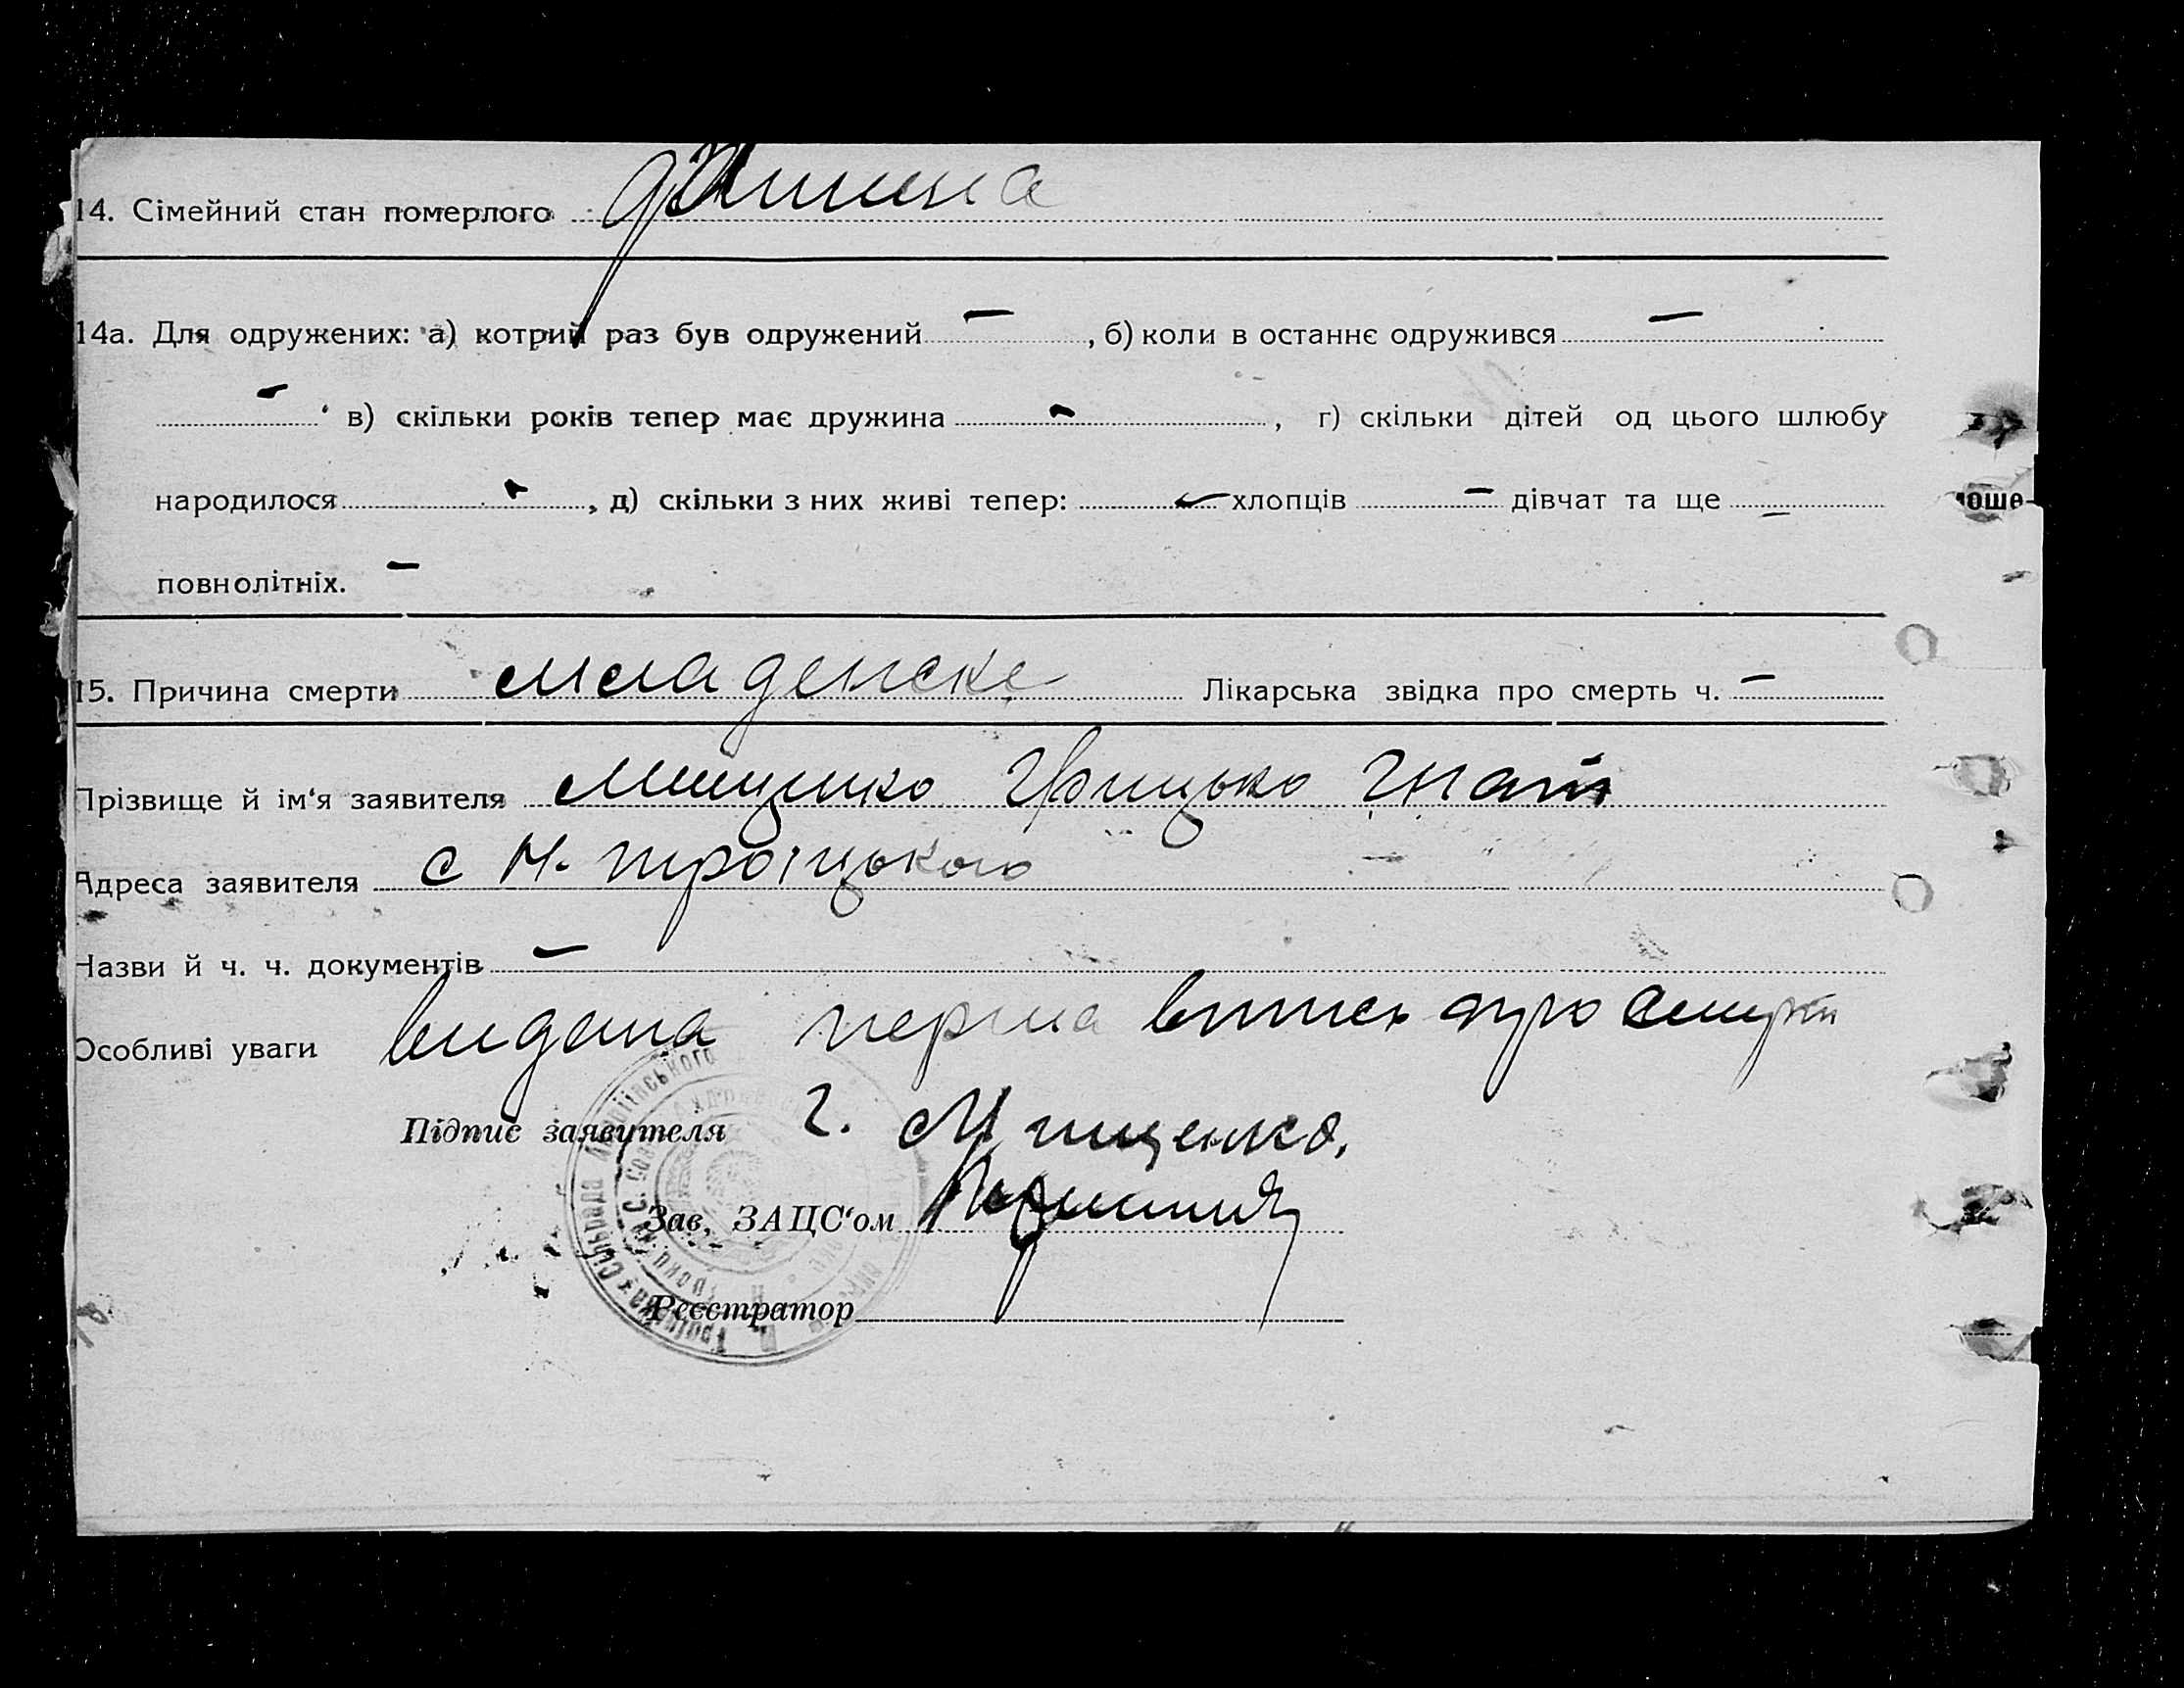 14. Сімейний стан померлого дитина
14а. Для одружених: а) котрий раз був одружений – , б) коли в останнє одружився –
– в) скільки років тепер має дружина – , г) скільки дітей од цього шлюбу
народилося – , д) скільки з них живі тепер: – хлопців – дівчат та ще –
повнолітніх. –
15. Причина смерти младенске Лікарська звідка про смерть ч. –
Прізвище й ім'я заявителя Грицько Гнат
Адреса заявителя с Н. троїцького
Назви й ч. ч. документів –
Особливі уваги видана перша випись про смерть
Підпис заявителя Г. Мищенко.
Зав. ЗАЦС'ом
Реєстратор